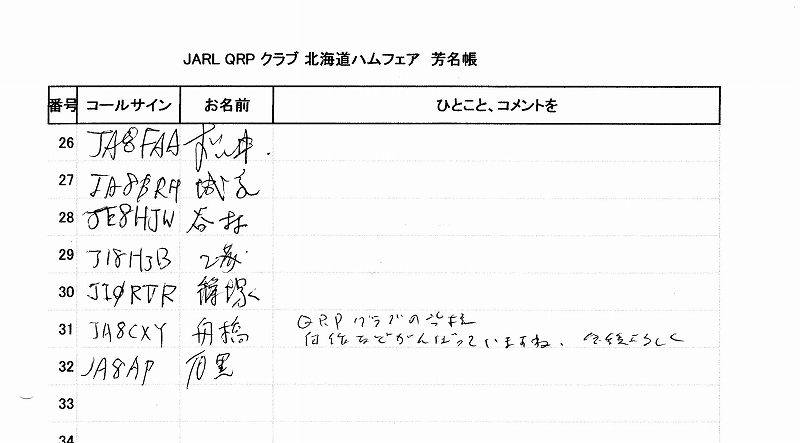 JARL QRP クラブ 北海道ハムフェア 芳名帳
番号 コールサイン お名前 ひとこと、コメントを
26 JA8FAA
27 JA8BRA
28 JE8HJW 谷村
29 JI8HJB
30 JI0RTR 篠塚
31 JA8CXY 舟橋 QRP クラブの
がんばっていますね、今後よろしく
32 JA8AP 石黒
33
34